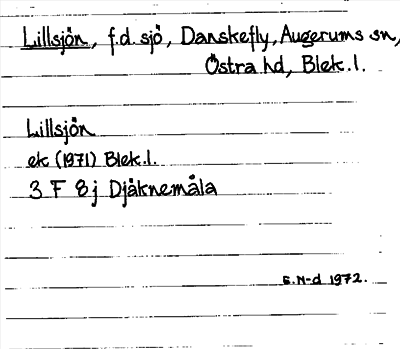 Lillsjön, f.d. sjö, Danskefly, Augerums sn,
Östra hd, Blek.l.
Lillsjön
ek (1971) Blek.l.
3 F 8 j Djäknemåla
G.N-d 1972.